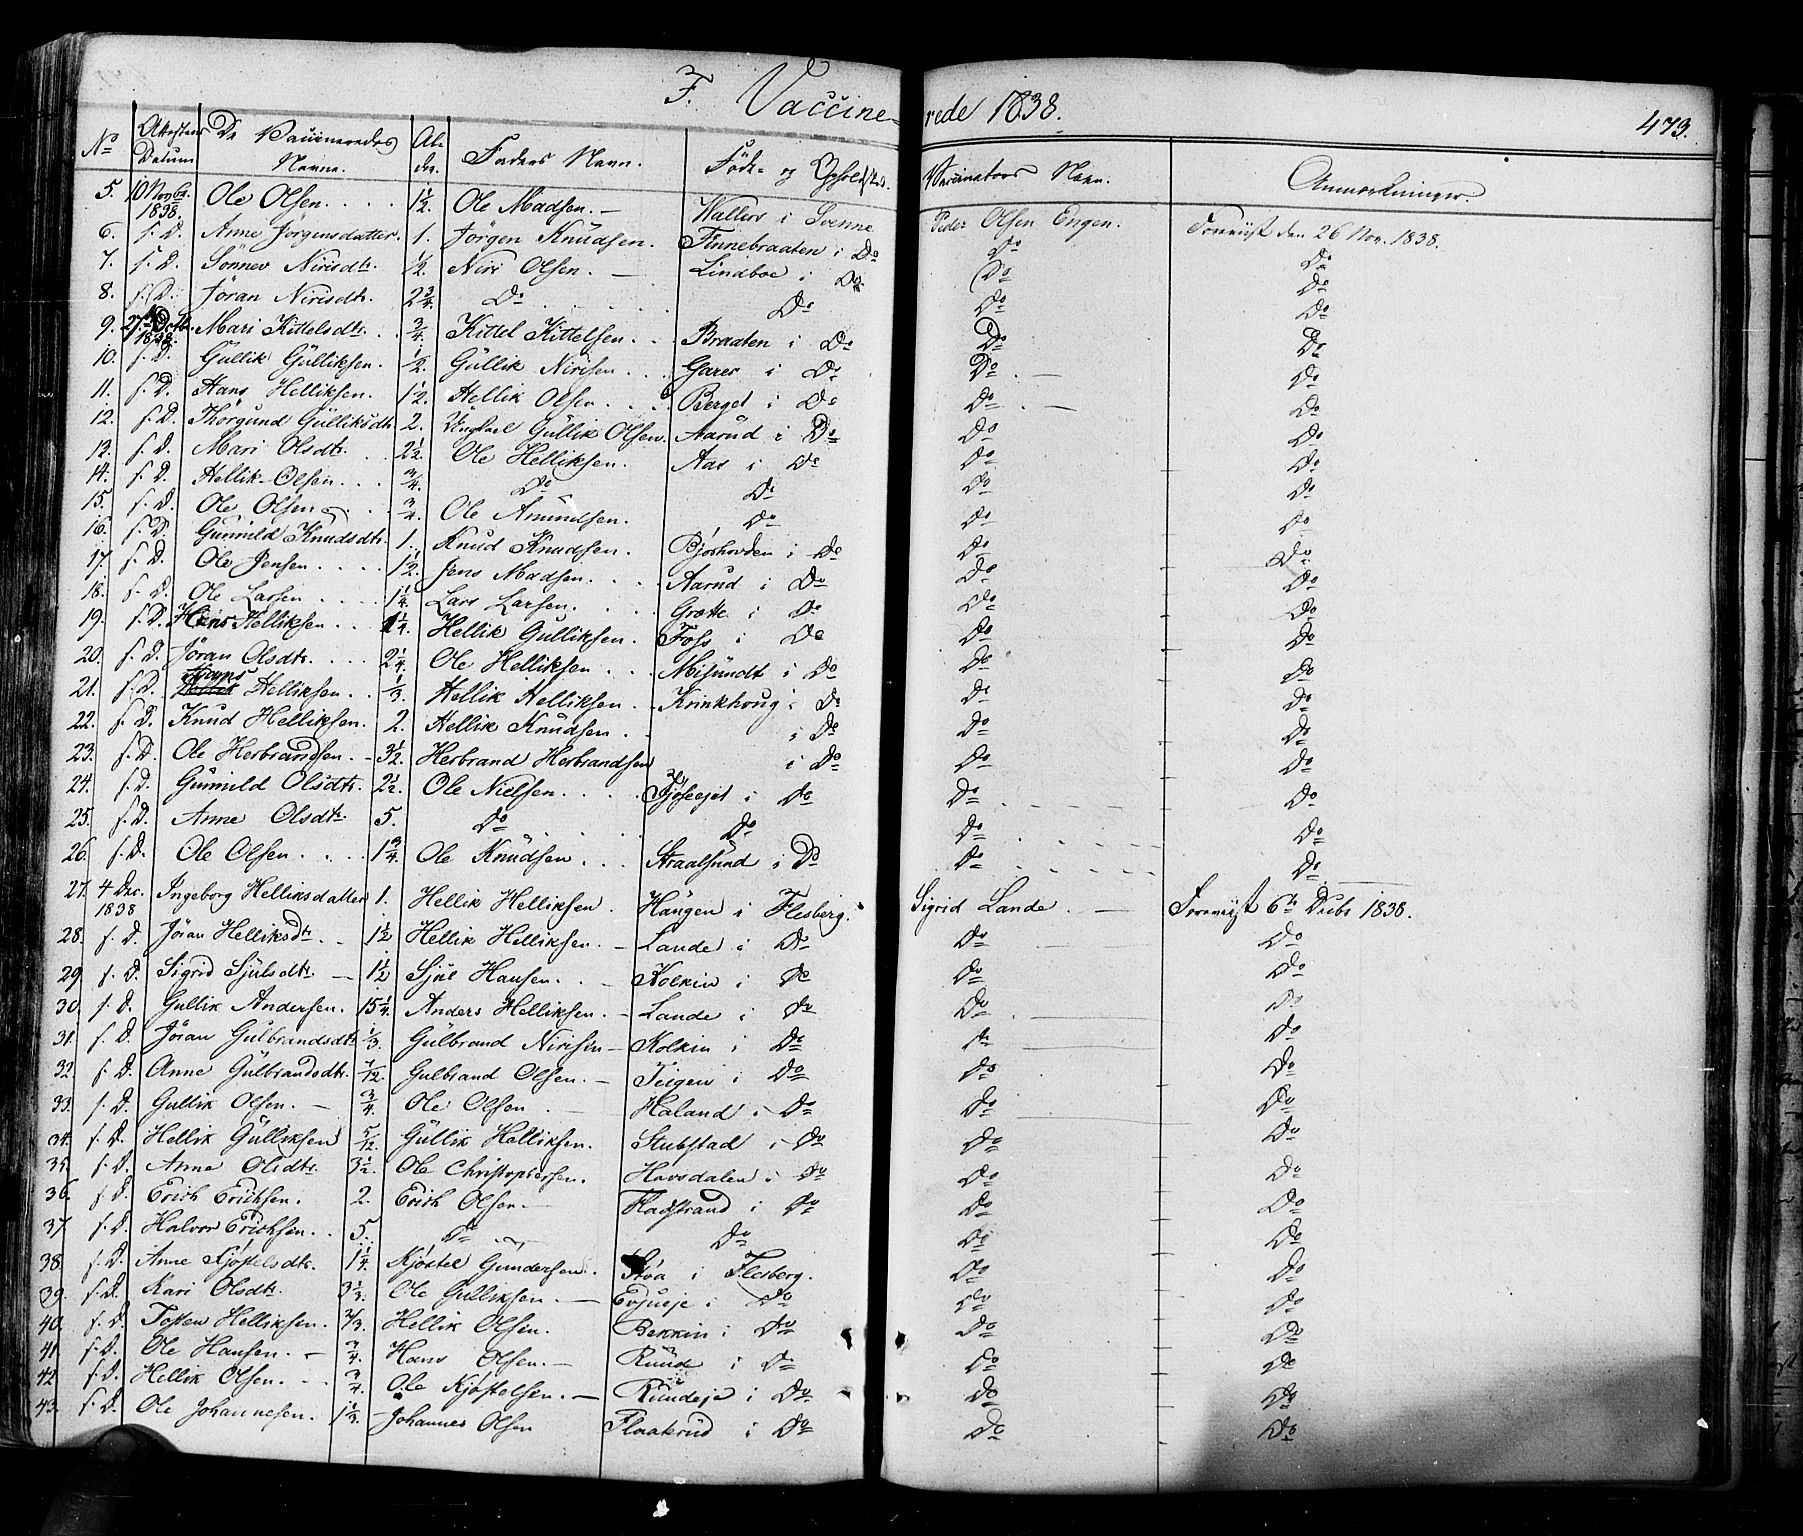 F. Vaccine-rede 1838. 473.
No Attestens Datum De Vaccineredes Navne. Al-der. Faders Navn. Føde- og Opholdssted. Vaccinators Navn. Anmærkninger.
5. 10 Novbr. 1838. Ole Olsen. 1½ Ole Madsen. Walløs i Svenne Peder Olsen Engen. Foreviist den 26 Nov. 1838.
6. s. D. Anne Jörgensdatter. 1. Jörgen Knudsen. Finnebraaten i Do Do Do
7. s. D. Sönnev Nirisdtr. ½ Niri Olsen. Lindboe i Do Do Do
8. s. D. Jöran Nirisdtr. 2¾. Do Do Do Do
9. 27. Octb. 1838. Mari Kittelsdtr. ¾ Kittel Kittelsen. Braaten i Do Do Do
10. s. D. Gullik Gulliksen. ½ Gullik Nirisen. i Do Do Do
11. s. D. Hans Helliksen. 1½. Hellik Olsen. Berget i Do Do Do
12. s. D. Thorgund Gulliksdtr 2. Gullik Olsen. Aarud i Do Do Do
13. s. D. Mari Olsdtr. 2½. Ole Helliksen. Aas i Do Do Do
14. s. D. Hellik Olsen. ¾. Do Do Do Do
15. s. D. Ole Olsen ¾. Ole Amundsen. Do Do Do
16. s. D. Gunnild Knudsdtr 1. Knud Knudsen. Bjørhovden i Do Do Do
17. s. D. Ole Jensen. 1½. Jens Madsen. Aarud i Do Do Do
18. s. D. Ole Larsen 1¼ Lars Larsen. Grøtte i Do Do Do
19. s. D. Hans Helliksen. 1¼. Hellik Gulliksen. Foss i Do Do Do
20. s. D. Jöran Olsdtr. 2¼. Ole Helliksen Misundt i Do Do Do
21. s. D. Hans Helliksen. ⅓. Hellik Helliksen. Krinkhoug i Do Do Do
22. s. D. Knud Helliksen. 2. Hellik Knudsen. i Do Do Do
23. s. D. Ole Herbrandsen. 3½. Herbrand Herbrandsen i Do Do Do
24. s. D. Gunnild Olsdtr. 2½. Ole Nielsen. i Do Do Do
25. s. D. Anne Olsdtr. 5. Do Do Do Do
26. s. D. Ole Olsen. 1¾ Ole Knudsen Straalsund i Do Do Do
27. 4 Dec. 1838 Ingeborg Helliksdatter 1. Hellik Helliksen. Haugen i Flesberg. Sigrid Lande. Foreviist 6te Decbr 1838.
28. s. D. Jöran Helliksdtr 1½ Hellik Helliksen. Lande i Do Do Do
29. s. D. Sigrid Sjulsdtr. 1½ Sjul Hansen. Kolkin i Do Do Do
30. s. D. Gullik Andersen. 15¼. Anders Helliksen. Lande i Do Do Do
31. s. D. Jöran Gulbrandsdtr ⅓. Gulbrand Nirisen Kolkin i Do Do
32. s. D. Anne Gulbrandsdtr. 7/12. Gulbrand Olsen. Teigen i Do Do Do
33. s. D. Gullik Olsen. ¾. Ole Olsen Haland i Do Do Do
34. s. D. Hellik Gulliksen 5/12. Gullik Helliksen. Stubstad i Do Do Do
35. s. D. Anne Olsdtr. 3½. Ole Christophersen. Hovsdalen i Do Do Do
36. s. D. Erich Erichsen. 2. Erich Olsen. Fladstrand i Do Do Do
37. s. D. Halvor Erichsen. 5. Do Do Do Do
38. s. D. Anne Kjøstelsdtr. 1¼. Kjøstel Gundersen. Støa i Flesberg. Do Do
39. s. D. Kari Olsdtr. 3⅓. Ole Gulliksen. Evjueje i Do Do Do
40. s. D. Tosten Helliksen. ⅔. Hellik Olsen. Bekkin i Do Do Do
41. s. D. Ole Hansen. ¾. Hans Olsen. Ruud i Do Do Do
42. s. D. Hellik Olsen. ¾. Ole Kjøstelsen. Ruudeje i Do Do Do
43. s. D. Ole Johannesen. 1⅓. Johannes Olsen Flaaterud i Do Do Do